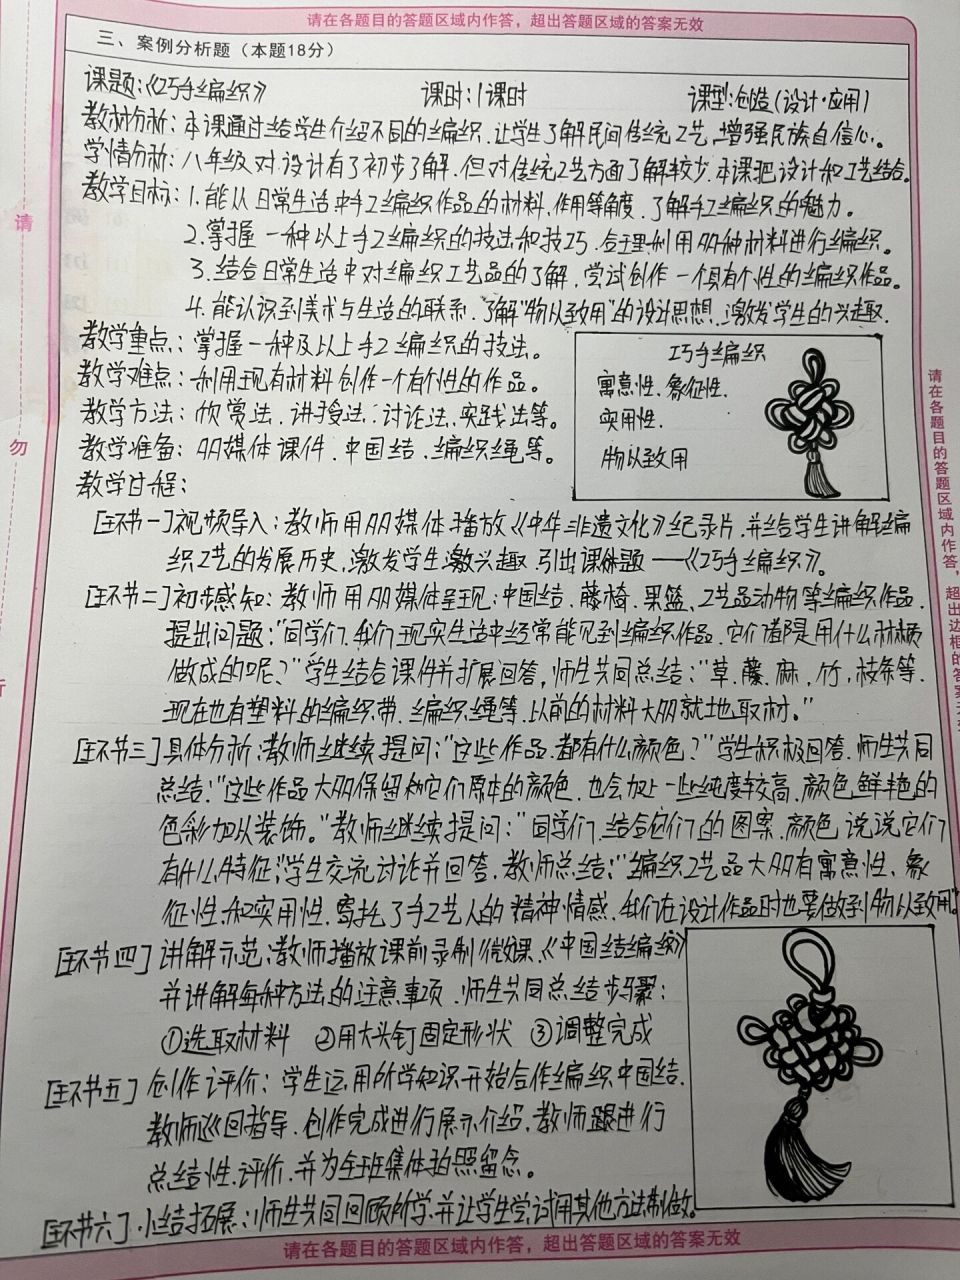 请在各题目的答题区域内作答，超出答题区域的答案无效
三、案例分析题（本题18分）
课题：《巧手编织》 课时：1课时 课型：创造（设计·应用）
教材分析：本课通过给学生介绍不同的编织，让学生了解民间传统工艺，增强民族自信心。
学情分析：八年级对设计有了初步了解，但对传统工艺方面了解较少，本课把设计和工艺结合。
教学目标：1.能从日常生活中手工编织作品的材料、作用等角度，了解手工编织的魅力。
2.掌握一种以上手工编织的技法和技巧，合理利用多种材料进行编织。
3.结合日常生活中对编织工艺品的了解，尝试创作一个具有个性的编织作品。
4.能认识到美术与生活的联系，了解"物以致用"的设计思想，激发学生的兴趣。
教学重点：掌握一种及以上手工编织的技法。
教学难点：利用现有材料创作一个有个性的作品。
教学方法：欣赏法、讲授法、讨论法、实践法等。
教学准备：多媒体课件、中国结、编织绳等。
巧手编织
寓意性、象征性、
实用性、
物以致用
教学日程：
[环节一]视频导入：教师用多媒体播放《中华非遗文化》纪录片，并给学生讲解编
织工艺的发展历史，激发学生兴趣，引出课题——《巧手编织》。
[环节二]初步感知：教师用多媒体呈现：中国结、藤椅、果篮、工艺品动物等编织作品，
提出问题："同学们，我们现实生活中经常能见到编织作品，它们都是用什么材质
做成的呢？"学生结合课件并扩展回答，师生共同总结："草、藤、麻、竹、枝条等，
现在也有塑料的编织带、编织绳等，以前的材料大多就地取材。"
[环节三]具体分析：教师继续提问："这些作品都有什么颜色？"学生积极回答，师生共同
总结："这些作品大多保留和它们原本的颜色，也会加上一些纯度较高、颜色鲜艳的
色彩加以装饰。"教师继续提问："同学们，结合它们的图案、颜色说说它们
有什么特征；"学生交流讨论并回答，教师总结："编织工艺品大多有寓意性、象
征性和实用性，寄托了手工艺人的精神情感，我们在设计作品时也要做到物以致用"
[环节四]讲解示范：教师播放课前录制微课《中国结编织》
并讲解每种方法的注意事项，师生共同总结步骤：
①选取材料 ②用大头钉固定形状 ③调整完成
[环节五]创作评价：学生运用所学知识开始合作编织中国结，
教师巡回指导，创作完成进行展示介绍，教师跟进行
总结性评价，并为全班集体拍照留念。
[环节六]小结拓展：师生共同回顾所学，并让学生尝试用其他方法制做。
请在各题目的答题区域内作答，超出答题区域的答案无效
请
勿
请在各题目的答题区域内作答，超出边框的答案无效